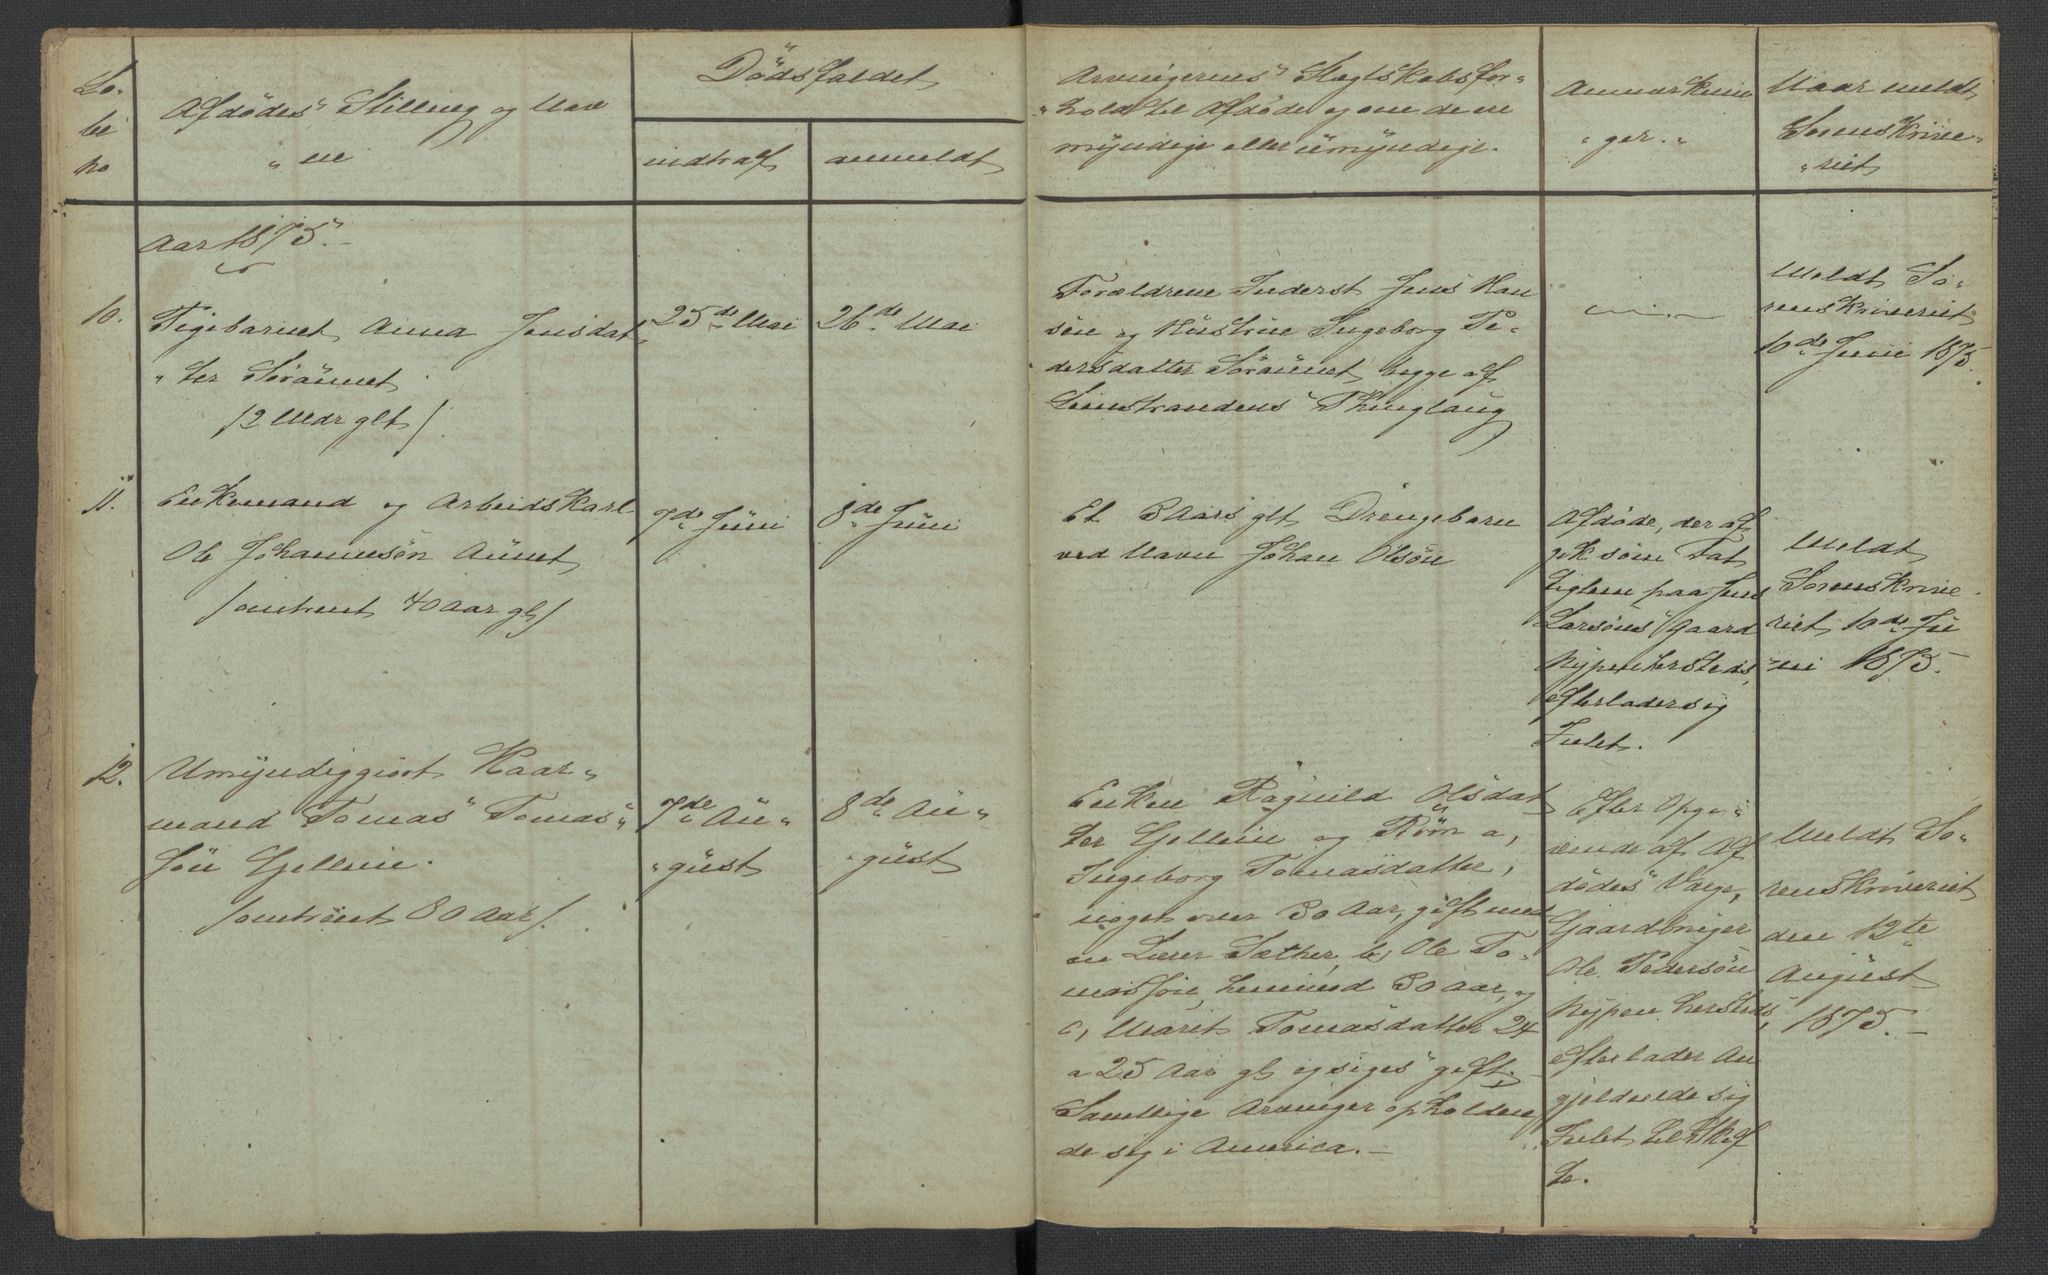 Lø-
be
No
Afdødes Stilling og Nav
„ne
Dødsfaldet
indtraf
anmeldt
Arvingernes Slegtskabsfor-
„hold til Afdøde og om de ere
myndige eller umyndige.
Anmærknin
„ger.„
Naar meldt
Sorenskrive-
„riet
Aar 1875.-
10.
Pigebarnet Anna Jensdat
„ter Søraunet
/2 Mdr glt/
25de Mai
26de Mai
Forældrene Inderst Jens Han
sen og Hustrue Ingeborg Pe-
dersdatter Søraunet, begge af
Leinstrandens Thinglaug
Meldt So-
renskriveriet
10de Juni 1875.
11.
Enkemand og Arbeidskarl
Ole Johannesøn Aunet
/omtrent 40 Aar gl/
7de Juni
8de Juni
Et 3 Aars glt Drengebarn
ved Navn Johan Olsøn
Afdøde, der af
gik som Fat
tiglem paa Jens
Larsøns Gaard
Nypen hersteds,
efterlader sig
Intet.
Meldt
Sorenskrive-
riet 10de Ju
ni 1875.
12.
Umyndiggjort Kaar-
mand Tomas Tomas-
søn Gjellein.
/omtrent 80 Aar/.
7de Au-
„gust
8de Au-
„gust
Enken Ragnild Olsdat
ter Gjellein og Børn a,
Ingeborg Tomasdatter,
noget over 30 Aar, gift med
en Lærer Sæther, b, Ole To-
massøn, henimod 30 Aar, og
c, Marit Tomasdatter 24
a 25 Aar gl og siges gift.
Samtlige Arvinger opholden
de sig i America.-
Efter Opgi-
vende af Af
dødes Værge,
Gaardbruger
Ole Pedersøn
Nypen hersteds,
efterlader An
gjeldende sig
Intet til Skif
te.
Meldt So-
renskriveriet
den 12te
August
1875.-